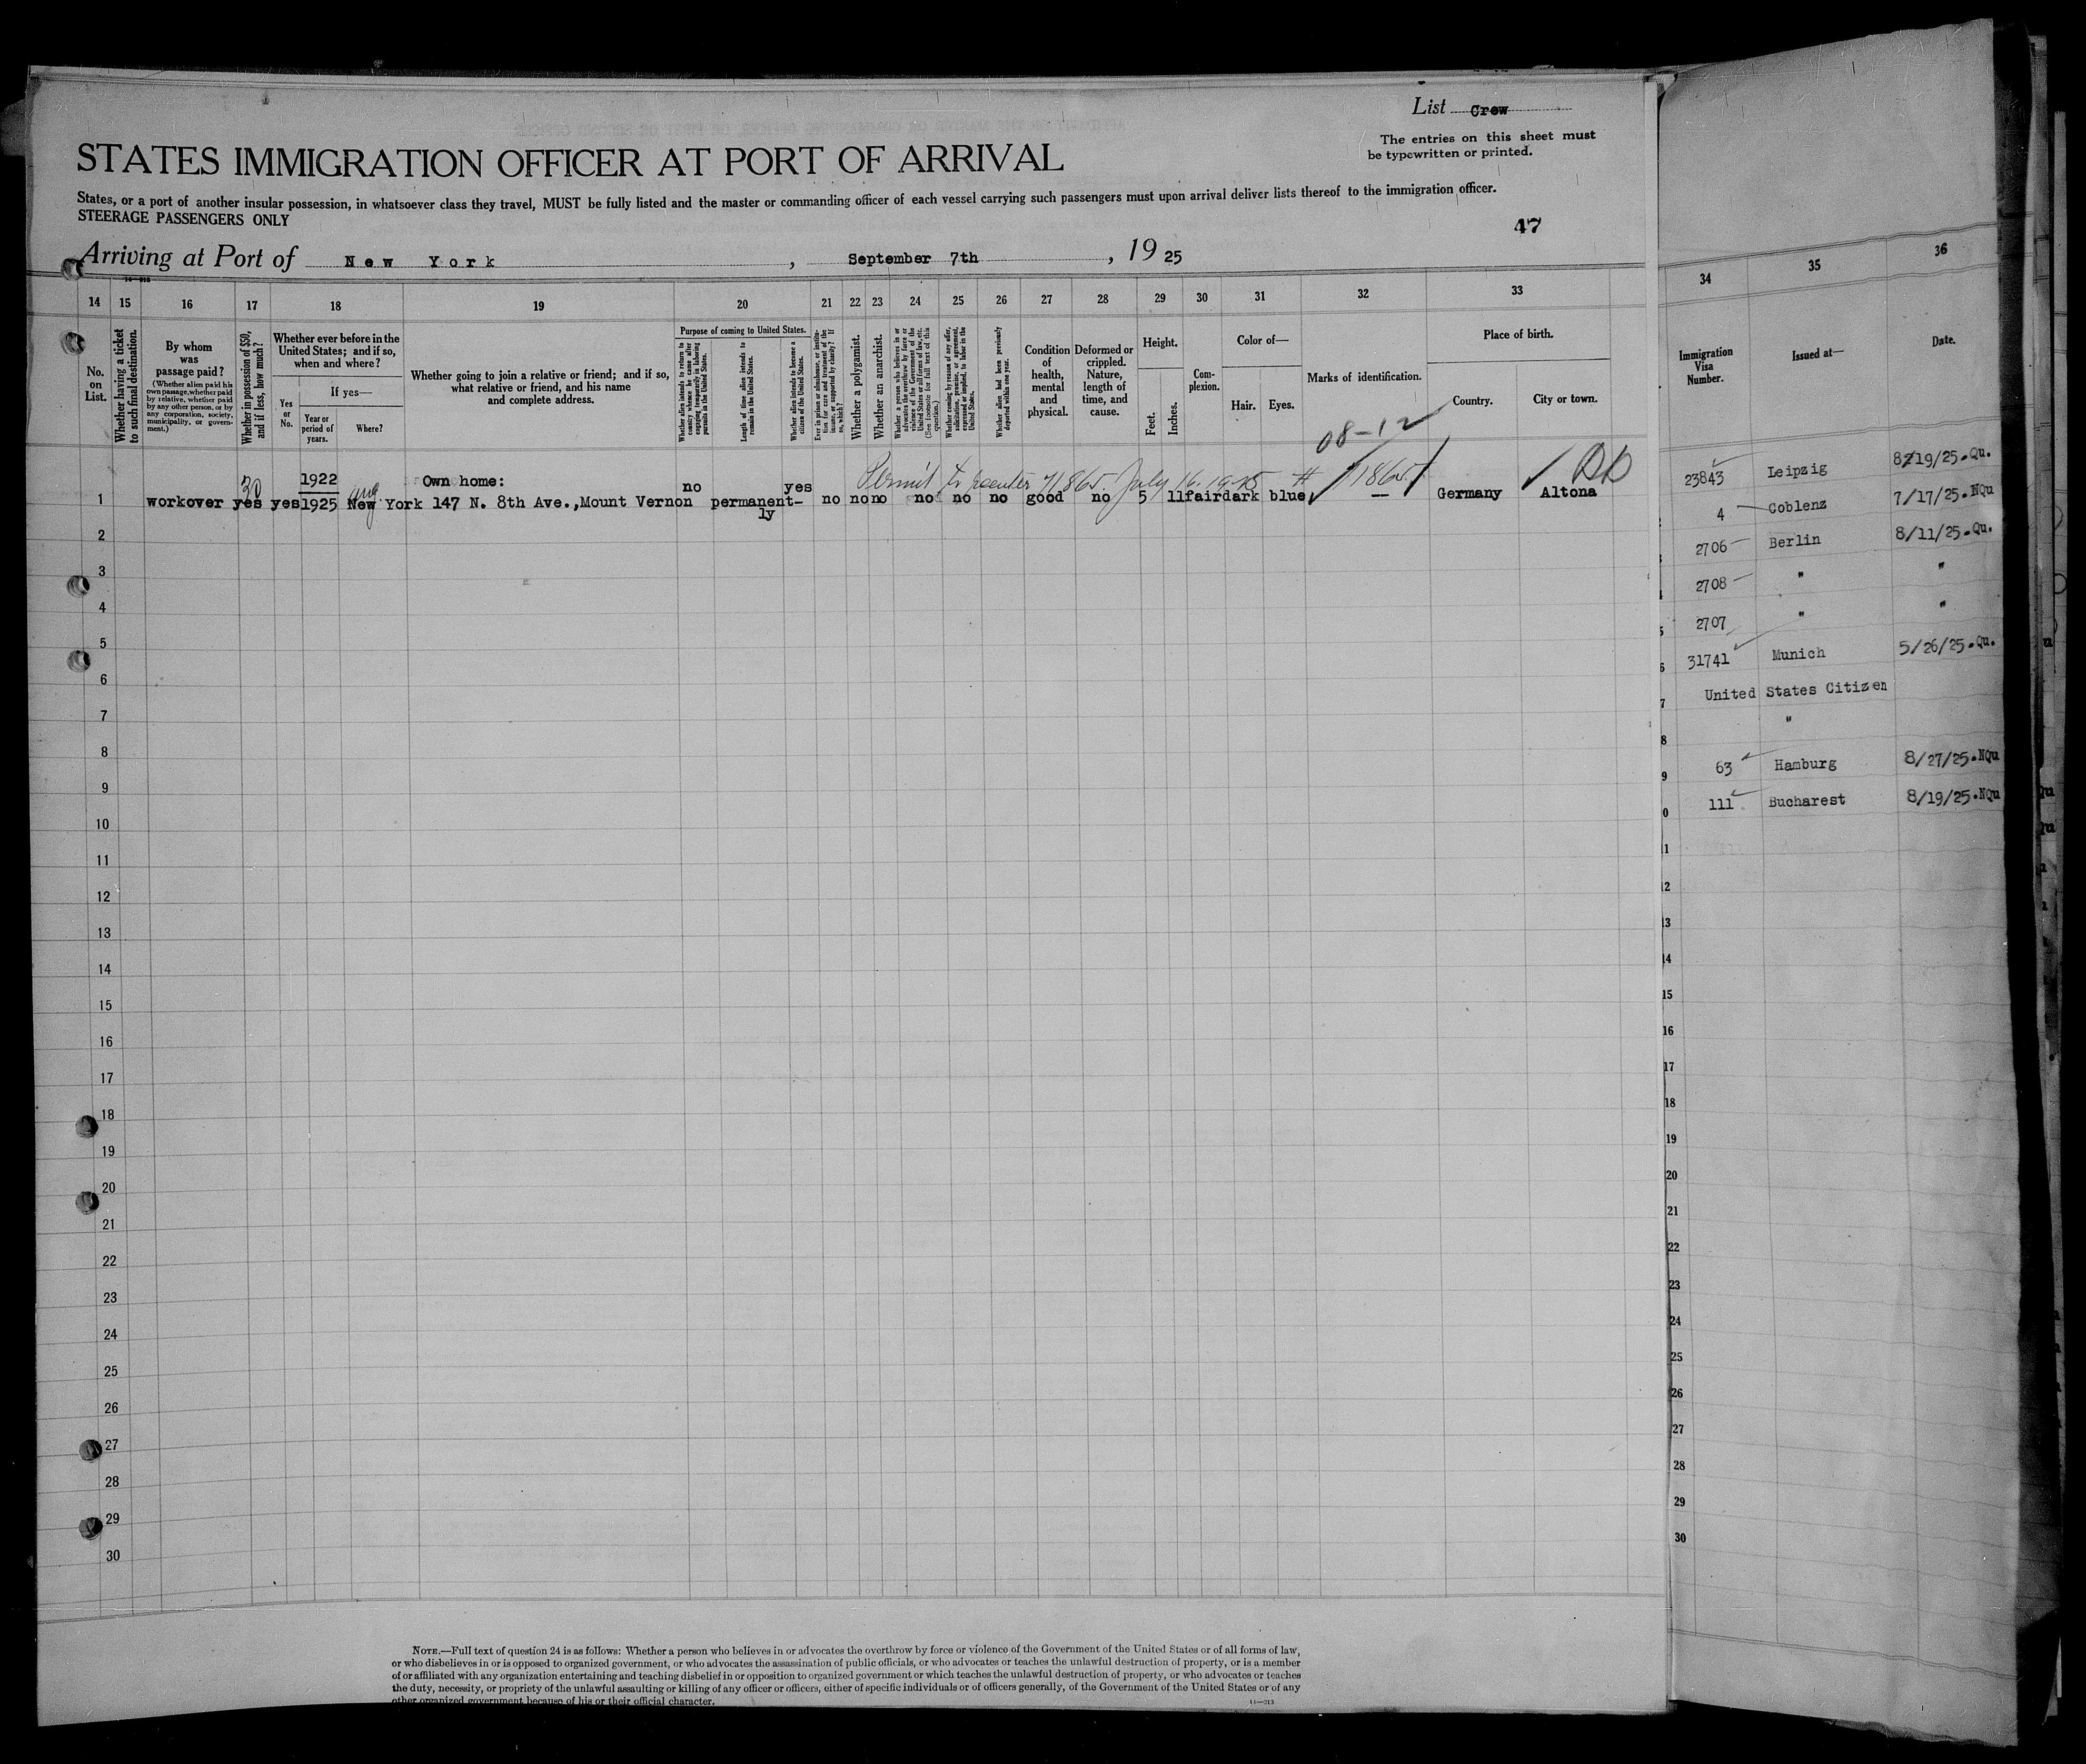 List Crew
The entries on this sheet must
be typewritten or printed.
STATES IMMIGRATION OFFICER AT PORT OF ARRIVAL
States, or a port of another insular possession, in whatsoever class they travel, MUST be fully listed and the master or commanding officer of each vessel carrying such passengers must upon arrival deliver lists thereof to the immigration officer.
STEERAGE PASSENGERS ONLY
47
Arriving at Port of New York, September 7th, 1925
14 15 16 17 18 19 20 21 22 23 24 25 26 27 28 29 30 31 32 33
No. on List.
Whether having a ticket to such final destination.
By whom was passage paid?
(Whether alien paid his own passage, whether paid by relative, whether paid by any other person, or by any corporation, society, municipality, or government.)
Whether in possession of $50, and if less, how much?
Whether ever before in the United States; and if so, when and where?
Yes or No.
If yes—
Year or period of years.
Where?
Whether going to join a relative or friend; and if so, what relative or friend, and his name and complete address.
Purpose of coming to United States.
Whether alien intends to return to country whence he came after engaging temporarily in laboring pursuits in the United States.
Length of time alien intends to remain in the United States.
Whether alien intends to become a citizen of the United States.
Ever in prison or almshouse, or institution for care and treatment of the insane, or supported by charity? If so, which?
Whether a polygamist.
Whether an anarchist.
Whether a person who believes in or advocates the overthrow by force or violence of the Government of the United States or all forms of law, etc. (See footnote for full text of this question.)
Whether coming by reason of any offer, solicitation, promise, or agreement, expressed or implied, to labor in the United States.
Whether alien had been previously deported within one year.
Condition of health, mental and physical.
Deformed or crippled. Nature, length of time, and cause.
Height.
Feet.
Inches.
Complexion.
Color of—
Hair.
Eyes.
Marks of identification.
Place of birth.
Country.
City or town.
08-12
1922 Own home: no yes Permit to reenter 71865 July 16. 1925 # 71865
30 aug
1 workover yes yes 1925 New York 147 N. 8th Ave., Mount Vernon permanently no no no no no no good no 5 11 fair dark blue — Germany Altona
2
3
4
5
6
7
8
9
10
11
12
13
14
15
16
17
18
19
20
21
22
23
24
25
26
27
28
29
30
NOTE.—Full text of question 24 is as follows: Whether a person who believes in or advocates the overthrow by force or violence of the Government of the United States or of all forms of law,
or who disbelieves in or is opposed to organized government, or who advocates the assassination of public officials, or who advocates or teaches the unlawful destruction of property, or is a member
of or affiliated with any organization entertaining and teaching disbelief in or opposition to organized government or which teaches the unlawful destruction of property, or who advocates or teaches
the duty, necessity, or propriety of the unlawful assaulting or killing of any officer or officers, either of specific individuals or of officers generally, of the Government of the United States or of any
other organized government because of his or their official character.
34 35 36
Immigration Visa Number.
Issued at—
Date.
23843 Leipzig 8/19/25.Qu.
4 Coblenz 7/17/25.NQu
2706 Berlin 8/11/25.Qu.
2708 " "
2707 " "
6 31741 Munich 5/26/25.Qu.
7 United States Citizen
8 "
9 63 Hamburg 8/27/25.NQu
0 111 Bucharest 8/19/25.NQu
11
12
13
14
15
16
17
18
19
20
21
22
23
24
25
26
27
28
29
30